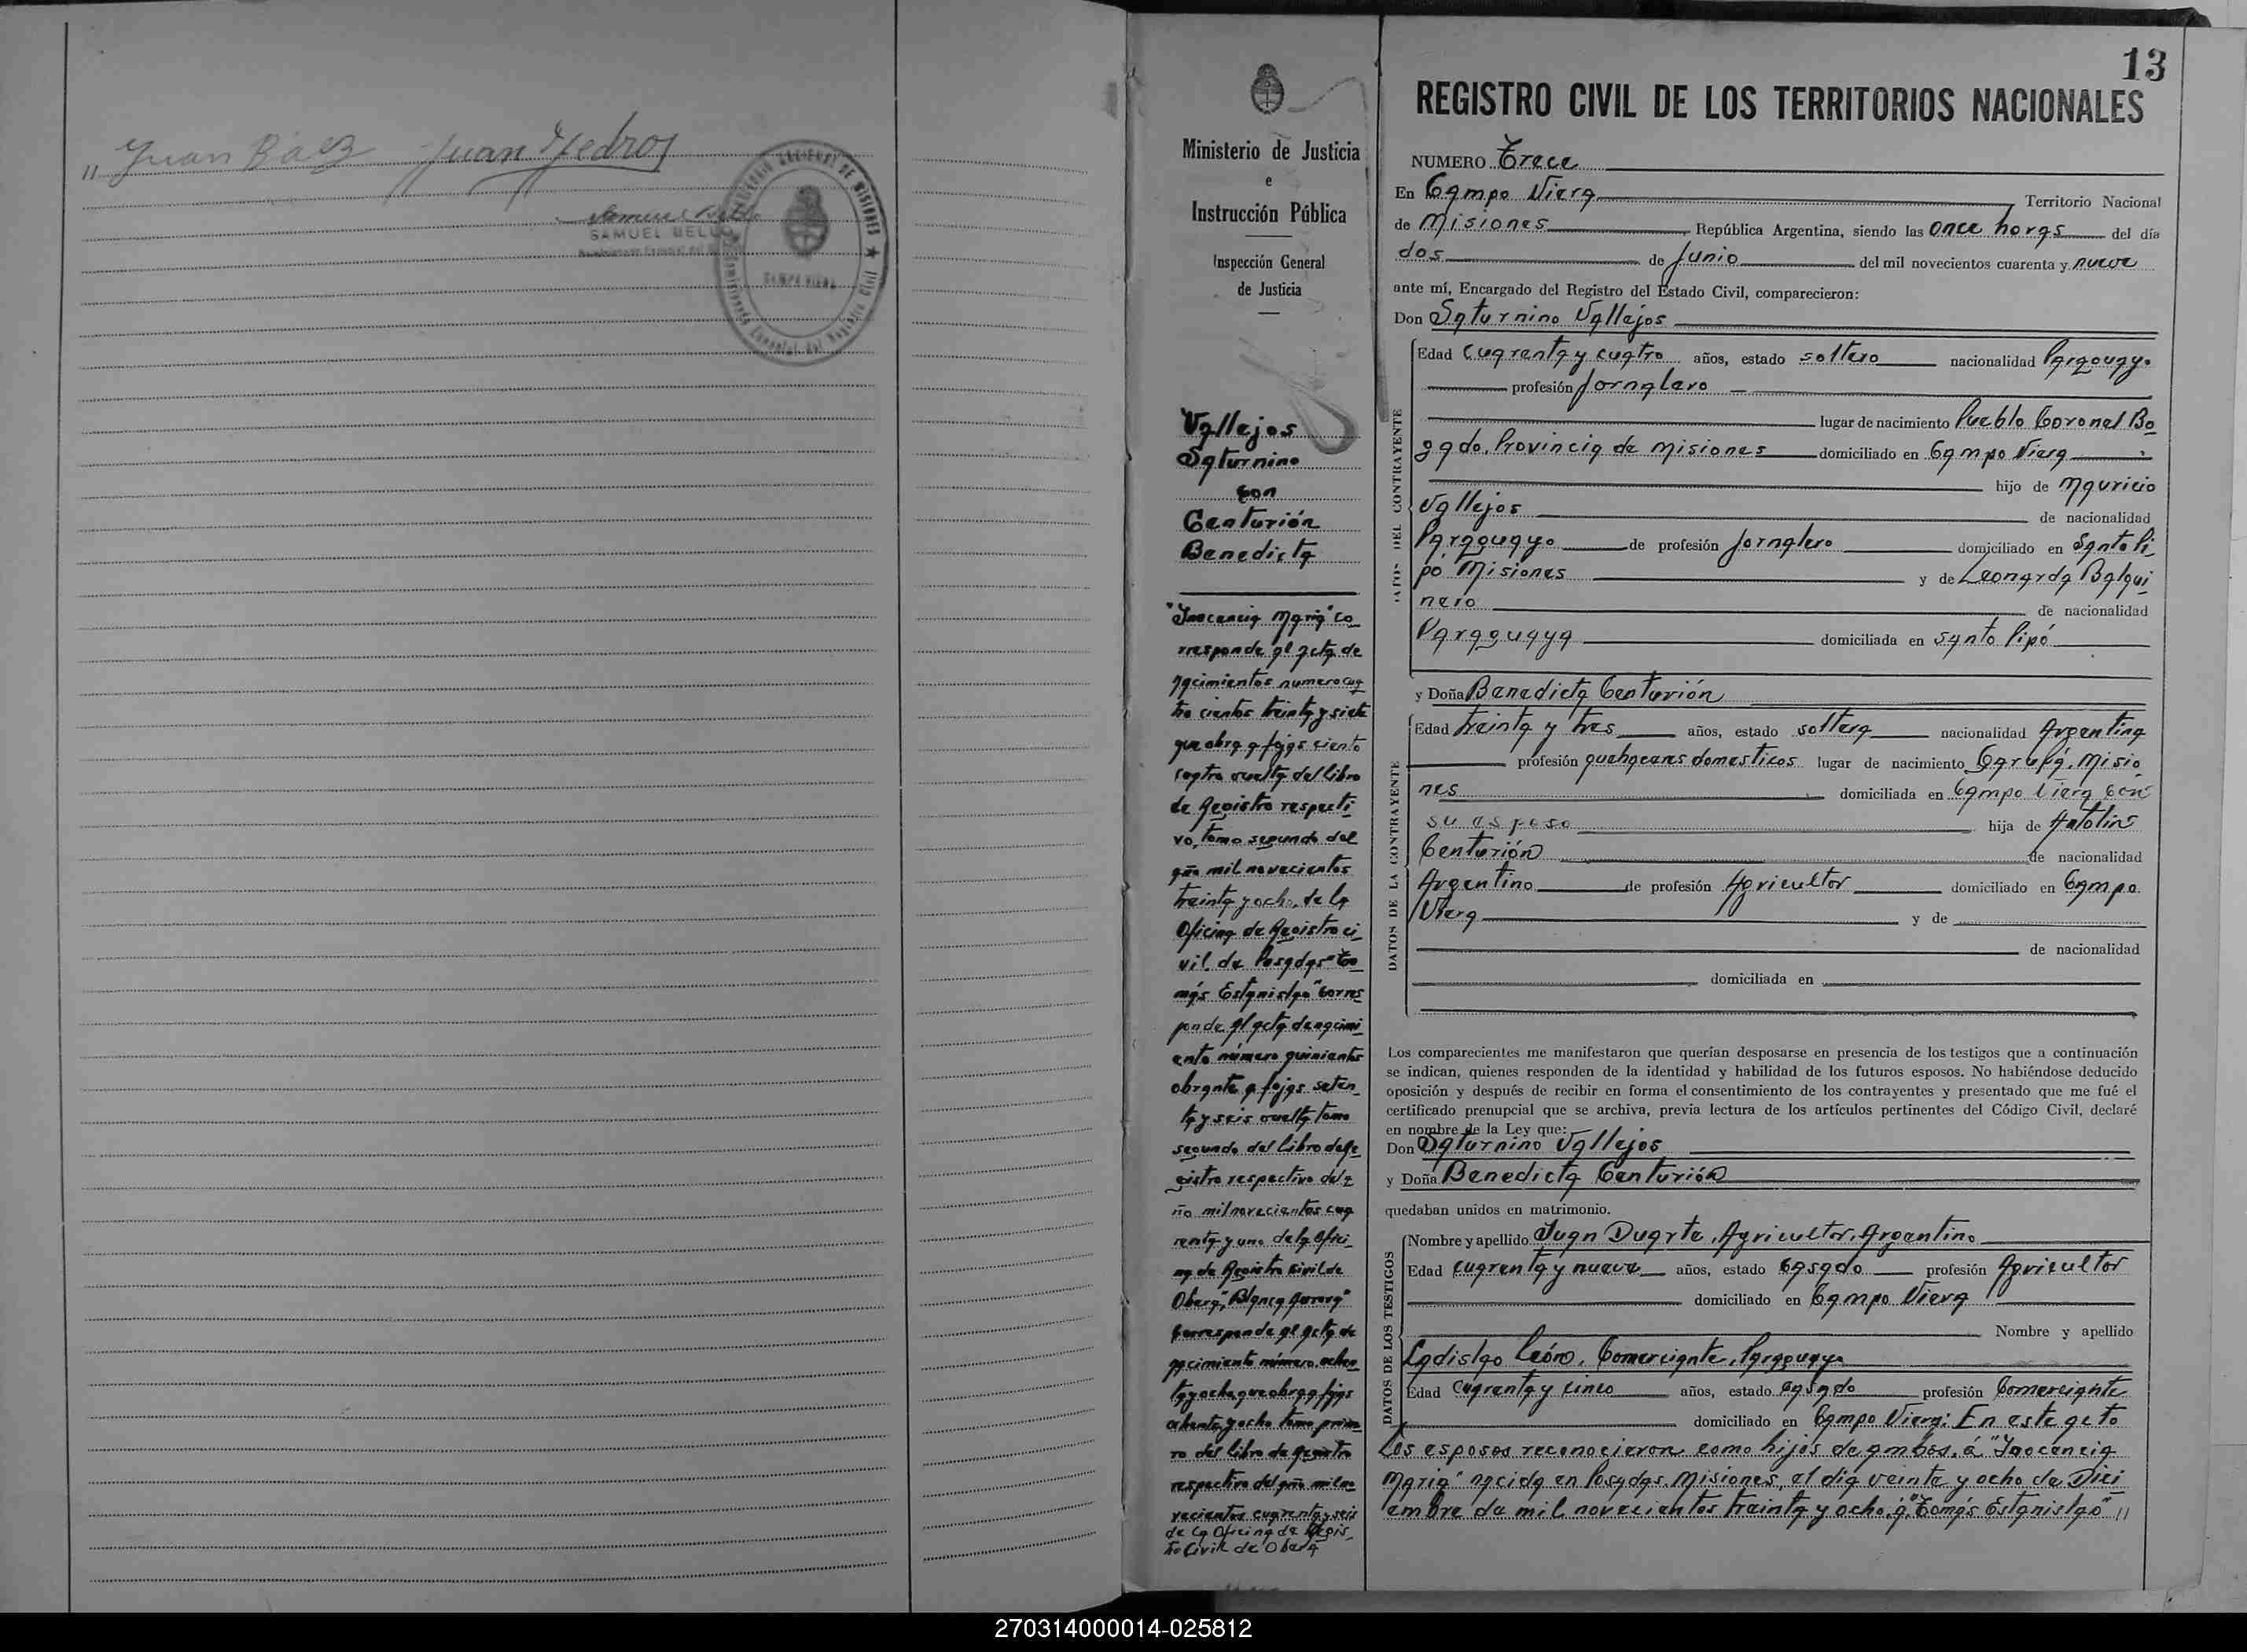 " Juan Báez Juan Yedros
SAMUEL BELLO
CAMPO VIERA
13
Ministerio de Justicia
e
Instrucción Pública
Inspección General
de Justicia
Vallejos
Saturnino
con
Centurión
Benedicta
"Inocencia Maria" co_
rresponde al acta de
nacimientos numero cua
tro cientos treinta y siete
que obra a fojas ciento
cuatro vuelta del Libro
de Registro respecti_
vo, tomo segundo del
año mil novecientos
treinta y ocho, de la
Oficina de Registro ci_
vil de Posadas "To_
más Estanislao" corres_
ponde al acta de nacimi_
ento número quinientos
obrante a fojas seten_
ta y seis vuelta tomo
segundo del Libro de Re_
gistro respectivo del a
ño mil novecientos cua
renta y uno de la Ofici_
na de Registro Civil de
Oberá, "Blanca Aurora"
corresponde al acta de
nacimiento número ochen_
ta y ocho que obra a fojas
ochenta y ocho tomo prime_
ro del libro de Registro
respectivo del año mil no_
vecientos cuarenta y seis
de la Oficina de Regis_
tro Civil de Oberá
REGISTRO CIVIL DE LOS TERRITORIOS NACIONALES
NUMERO Trece
En Campo Viera Territorio Nacional
de Misiones República Argentina, siendo las once horas del día
dos de Junio del mil novecientos cuarenta y nueve
ante mí, Encargado del Registro del Estado Civil, comparecieron:
Don Saturnino Vallejos
DATOS DEL CONTRAYENTE
Edad cuarenta y cuatro años, estado soltero nacionalidad Paraguayo
profesión Jornalero
lugar de nacimiento Pueblo Coronel Bo
gado, Provincia de Misiones domiciliado en Campo Viera
hijo de Mauricio
Vallejos de nacionalidad
Paraguayo de profesión Jornalero domiciliado en Santo Pi_
pó Misiones y de Leonarda Balqui_
nero de nacionalidad
Paraguaya domiciliada en Santo Pipó
y Doña Benedicta Centurión
DATOS DE LA CONTRAYENTE
Edad treinta y tres años, estado soltera nacionalidad Argentina
profesión quehaceres domesticos lugar de nacimiento Garupá, Misio_
nes domiciliada en Campo Viera con
su esposo hija de Antolin
Centurión de nacionalidad
Argentino de profesión Agricultor domiciliado en Campo
Viera y de
de nacionalidad
domiciliada en
Los comparecientes me manifestaron que querían desposarse en presencia de los testigos que a continuación
se indican, quienes responden de la identidad y habilidad de los futuros esposos. No habiéndose deducido
oposición y después de recibir en forma el consentimiento de los contrayentes y presentado que me fué el
certificado prenupcial que se archiva, previa lectura de los artículos pertinentes del Código Civil, declaré
en nombre de la Ley que:
Don Saturnino Vallejos
y Doña Benedicta Centurión
quedaban unidos en matrimonio.
DATOS DE LOS TESTIGOS
Nombre y apellido Juan Duarte, Agricultor, Argentino
Edad cuarenta y nueve años, estado casado profesión Agricultor
domiciliado en Campo Viera
Nombre y apellido
Ladislao León, Comerciante, Paraguayo
Edad cuarenta y cinco años, estado casado profesión Comerciante
domiciliado en Campo Viera: En este acto
los esposos reconocieron como hijos de ambos, á "Inocencia
Maria" nacida en Posadas, Misiones, el día veinte y ocho de Dici_
embre de mil novecientos treinta y ocho, á "Tomás Estanislao" "
270314000014-025812